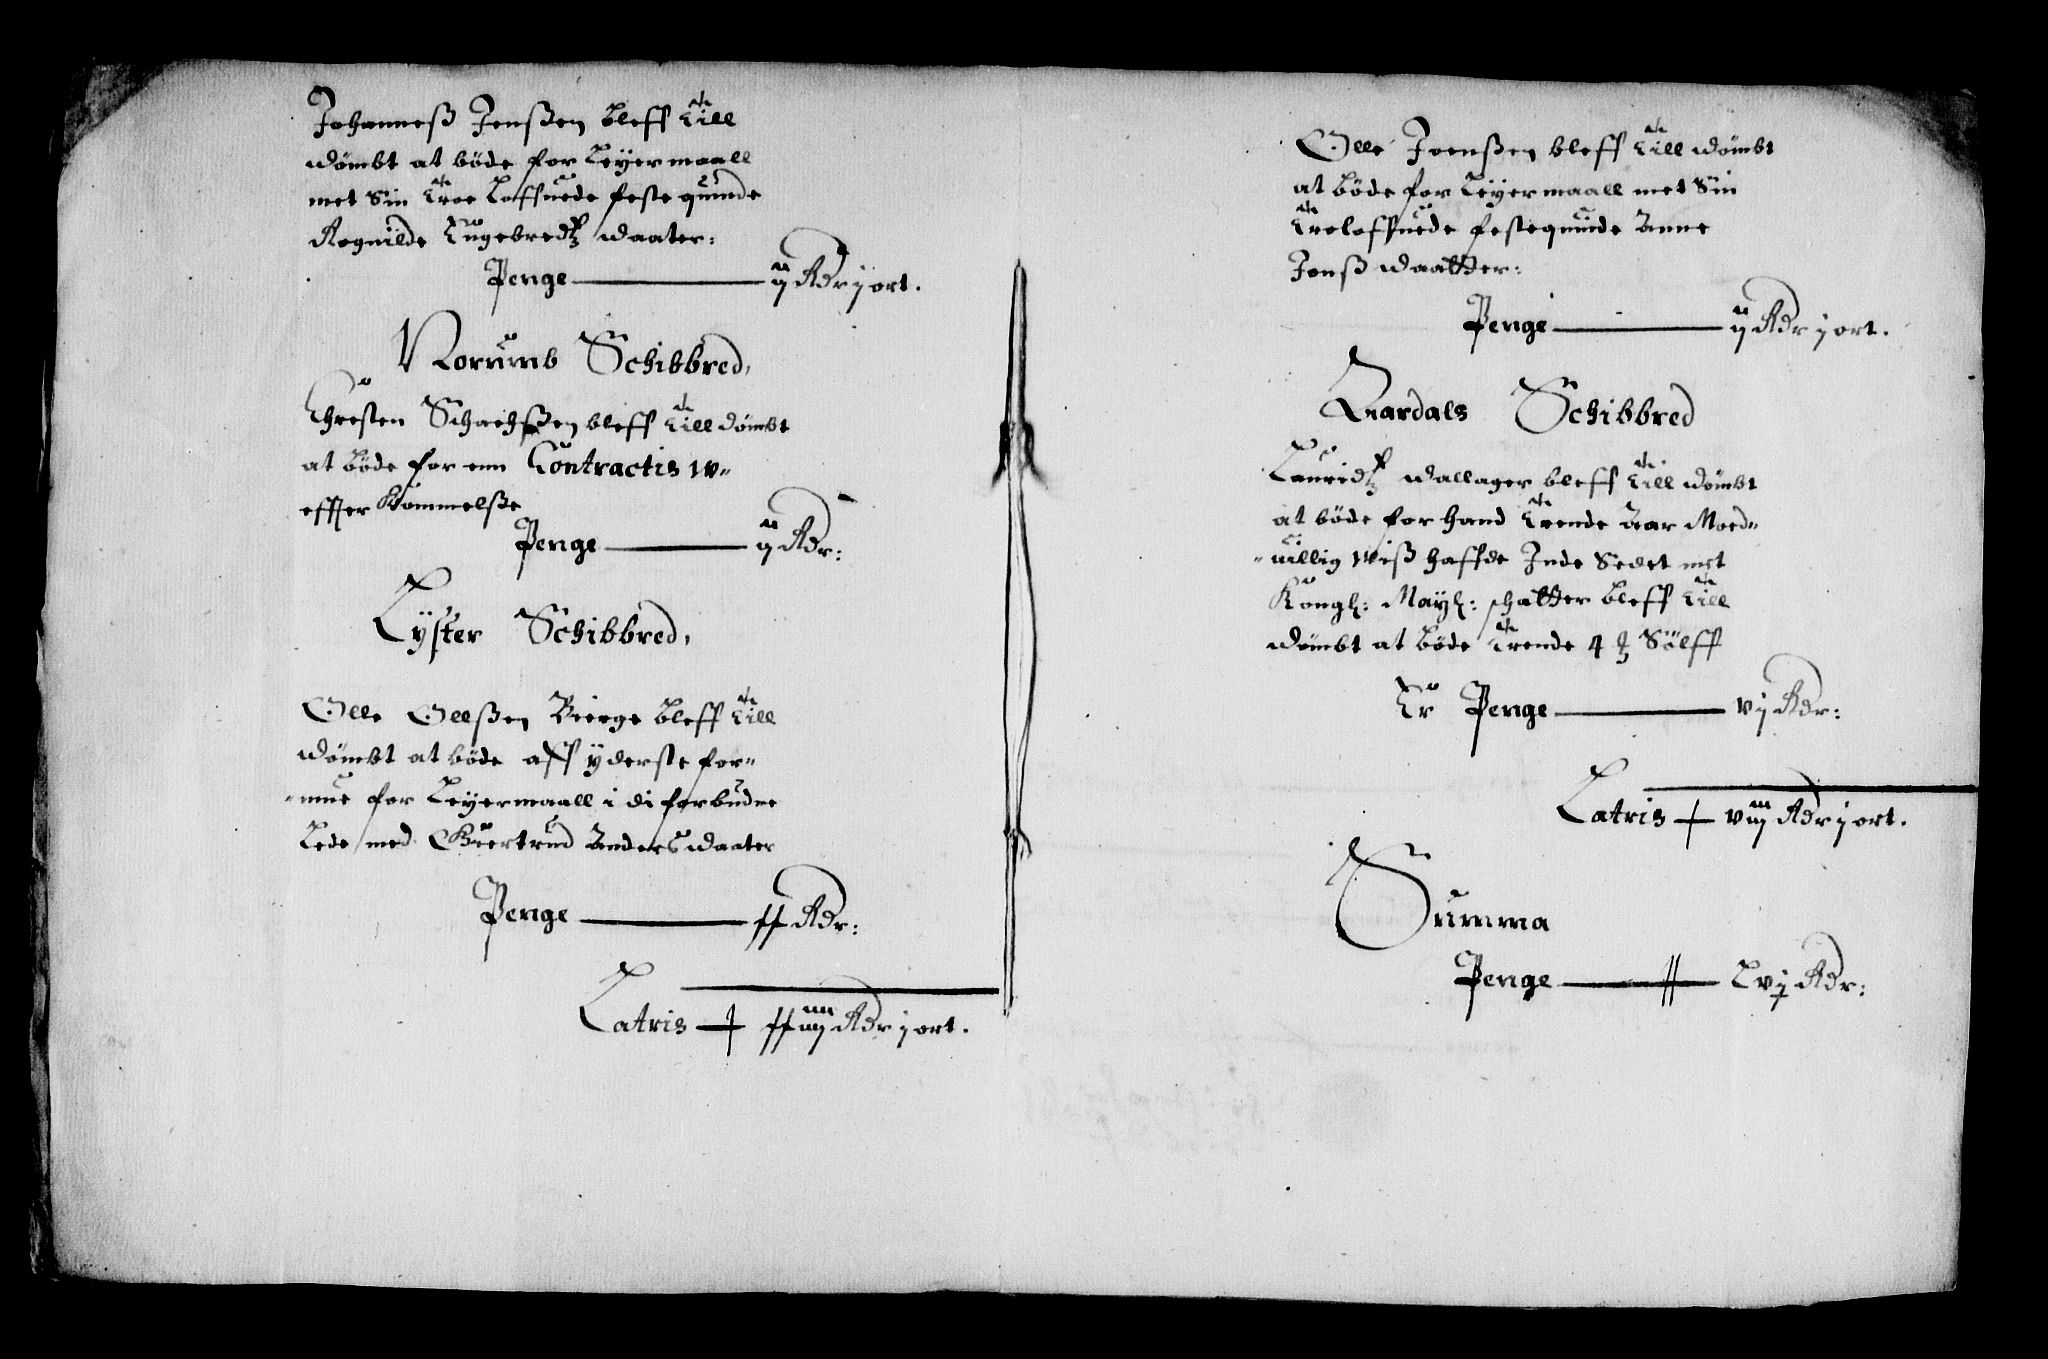 Johanneß Jenßen bleff till
dømbt at bøde for Leyermaall
met Sin troe Loffuede feste quinde
Rognilde Tugebredtz daater:
Penge — ij Rdr j ort.
Norumb Schibbred,
Christen Schachßen bleff till dømbt
at bøde for enn Contractis w=
effter Kommelße
Penge — ij Rdr:
Lyster Schibbred,
Olle Ollßen Bierge bleff till
dømbt at bøde aff yderste for=
=mue for Leyermaall i di forbudne
Lede med Giertrud Anders daater
Penge — xx Rdr:
Latris — xxiiij Rdr j ort.
Olle Joenßen bleff till dømbt
at bøde for Leyermaall met Sin
troloffuede festequinde Anne
Jenß daatter:
Penge — ij Rdr j ort.
Aardals Schibbred
Lauridtz dallager bleff till dømbt
at bøde for hand trende Aar Moed=
=uillig wiß haffde Inde Sedet met
Kongl: Mayt: schatter bleff till
dømbt at bøde trende 4 Sølff
Er Penge — vj Rdr:
Latris — viij Rdr j ort.
Summa
Penge — Lvj Rdr: